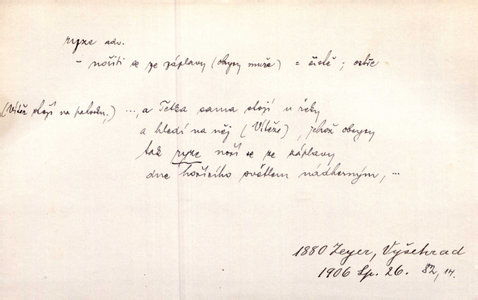 ryze adv.
- nořiti se ze záplavy (obrysy muže) = čistě; ostře
(Vítěz stojí na palouku,) ..., a Tetka sama stojí u řeky
a hledí na něj (Vítěze), jehož obrysy
tak ryze noří se ze záplavy
dne hořícího světlem nádherným, ...
1880 Zeyer, Vyšehrad
1906 Sp. 26. 82, 14.